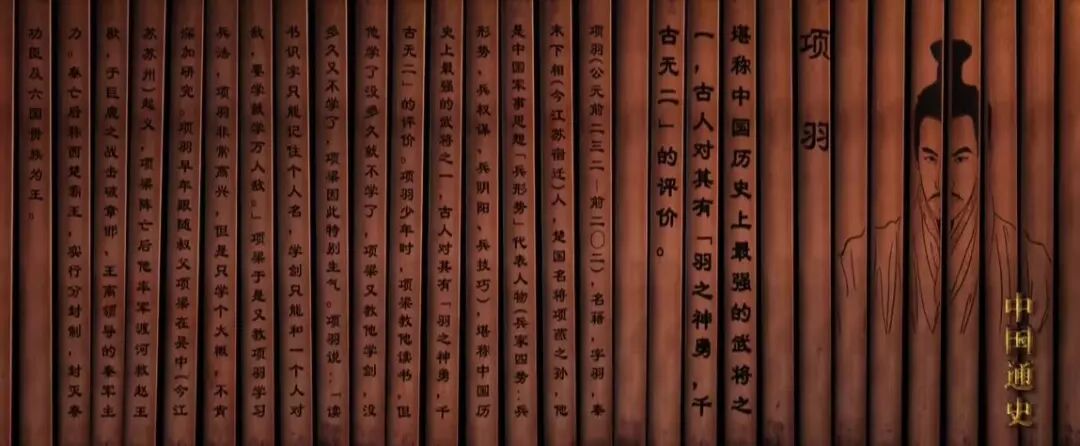 项羽
堪称中国历史上最强的武将之
一，古人对其有「羽之神勇，千
古无二」的评价。
项羽(公元前二三二—前二〇二)，名籍，字羽，秦
末下相(今江苏宿迁)人，楚国名将项燕之孙，他
是中国军事思想「兵形势」代表人物(兵家四势：兵
形势、兵权谋、兵阴阳、兵技巧)，堪称中国历
史上最强的武将之一，古人对其有「羽之神勇，千
古无二」的评价。项羽少年时，项梁教他读书，但
他学了没多久就不学了，项梁又教他学剑，没
多久又不学了，项梁因此特别生气。项羽说：「读
书识字只能记住个人名，学剑只能和一个人对
敌，要学就学万人敌。」项梁于是又教项羽学习
兵法，项羽非常高兴，但是只学个大概，不肯
深加研究。项羽早年跟随叔父项梁在吴中(今江
苏苏州)起义，项梁阵亡后他率军渡河救赵王
歇，于巨鹿之战击破章邯、王离领导的秦军主
力。秦亡后称西楚霸王，实行分封制，封灭秦
功臣及六国贵族为王。
中国通史